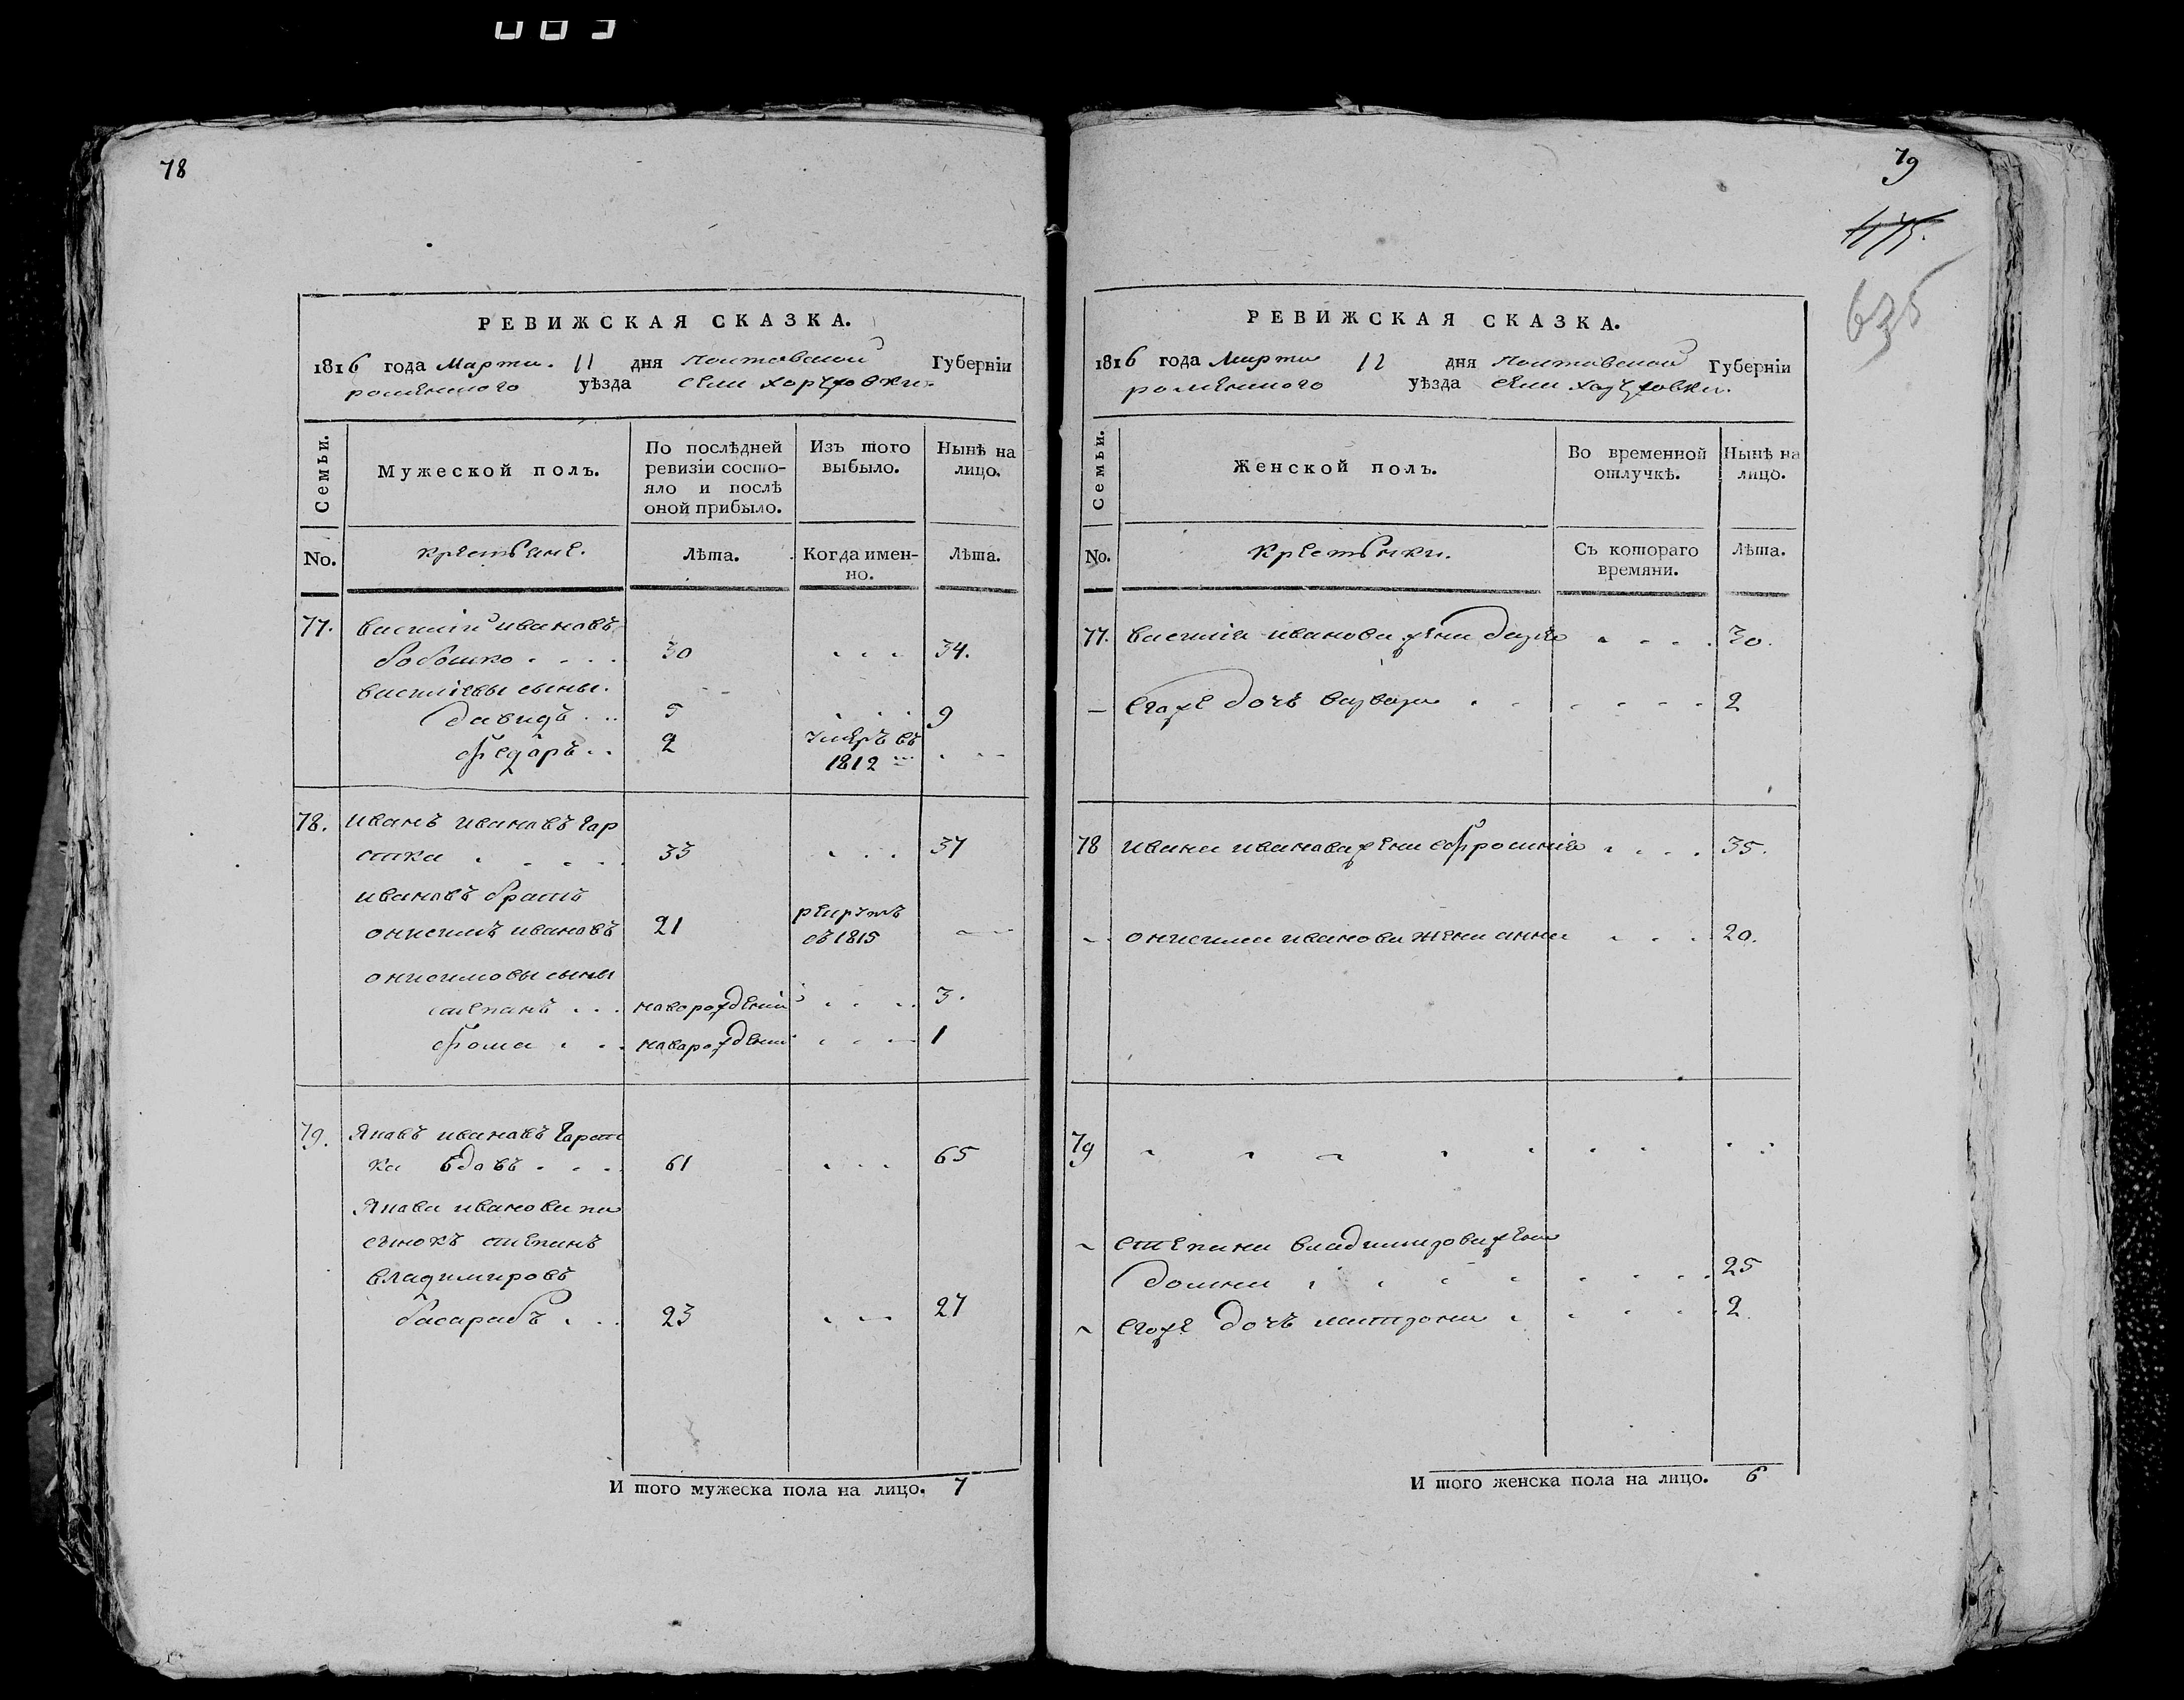 78
РЕВИЖСКАЯ СКАЗКА.
1816 года Марта. 11 дня полтавской Губерніи
роменского уѣзда села
Семьи.
Мужеской полъ.
По послѣдней ревизіи состояло и послѣ оной прибыло.
Изъ того выбыло.
Нынѣ на лицо.
No.
крестьяне.
Лѣта.
Когда именно.
Лѣта.
77. василій ивановъ
бобошко 30 34.
василіевы сыны.
давидъ 5 9
федоръ 2 умеръ въ
1812
78. иванъ ивановъ гор
стка 33 37
ивановъ братъ
онисимъ ивановъ 21 рекрутъ
въ 1815
онисимовы сыны
степанъ новорожденій 3.
фома новорожденій 1
79. Яковъ ивановъ горст
ка вдовъ 61 65
Якова иванова па
сынокъ степанъ
владимировъ
басарабъ 23 27
И того мужеска пола на лицо. 7
79
635
РЕВИЖСКАЯ СКАЗКА.
1816 года Марта 11 дня полтавской Губерніи
роменского уѣзда села
Семьи.
Женской полъ.
Во временной отлучкѣ.
Нынѣ на лицо.
No.
крестьянки.
Съ котораго времяни.
Лѣта.
77. василія иванова жена дарія 30.
егоже дочь варвара 2
78 ивана иванова жена ефросинія 35.
онисима иванова жена анна 20.
79
степана владимирова жена
домна 25
егоже дочь матрона 2
И того женска пола на лицо. 6